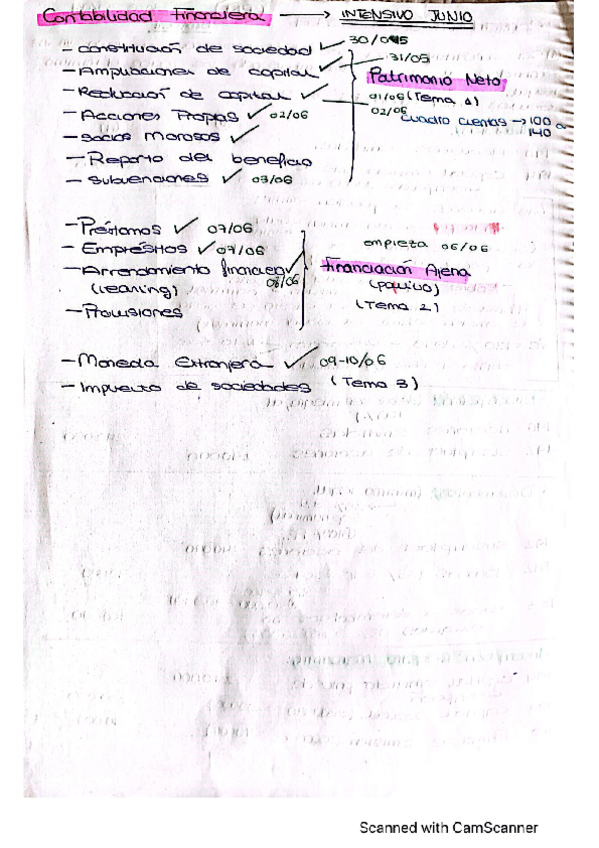 Contabilidad Financiera → INTENSIVO JUNIO
- constitución de sociedad ✓ 30/05
- Ampliaciones de capital ✓ 31/05
Patrimonio Neto
- Reducción de capital ✓ 01/06 (Tema 1)
- Acciones Propias ✓ 02/06
02/06 cuadro cuentas → 100 a 140
- Socios Morosos ✓
- Reparto del beneficio
- Subvenciones ✓ 03/06
- Préstamos ✓ 07/06
empieza 06/06
- Empréstitos ✓ 07/06
- Arrendamiento financiero ✓ 08/06
(leaning)
Financiación Ajena
(pasivo)
(Tema 2)
- Provisiones
- Moneda Extranjera ✓ 09-10/06
- Impuesto de sociedades (Tema 3)
Scanned with CamScanner